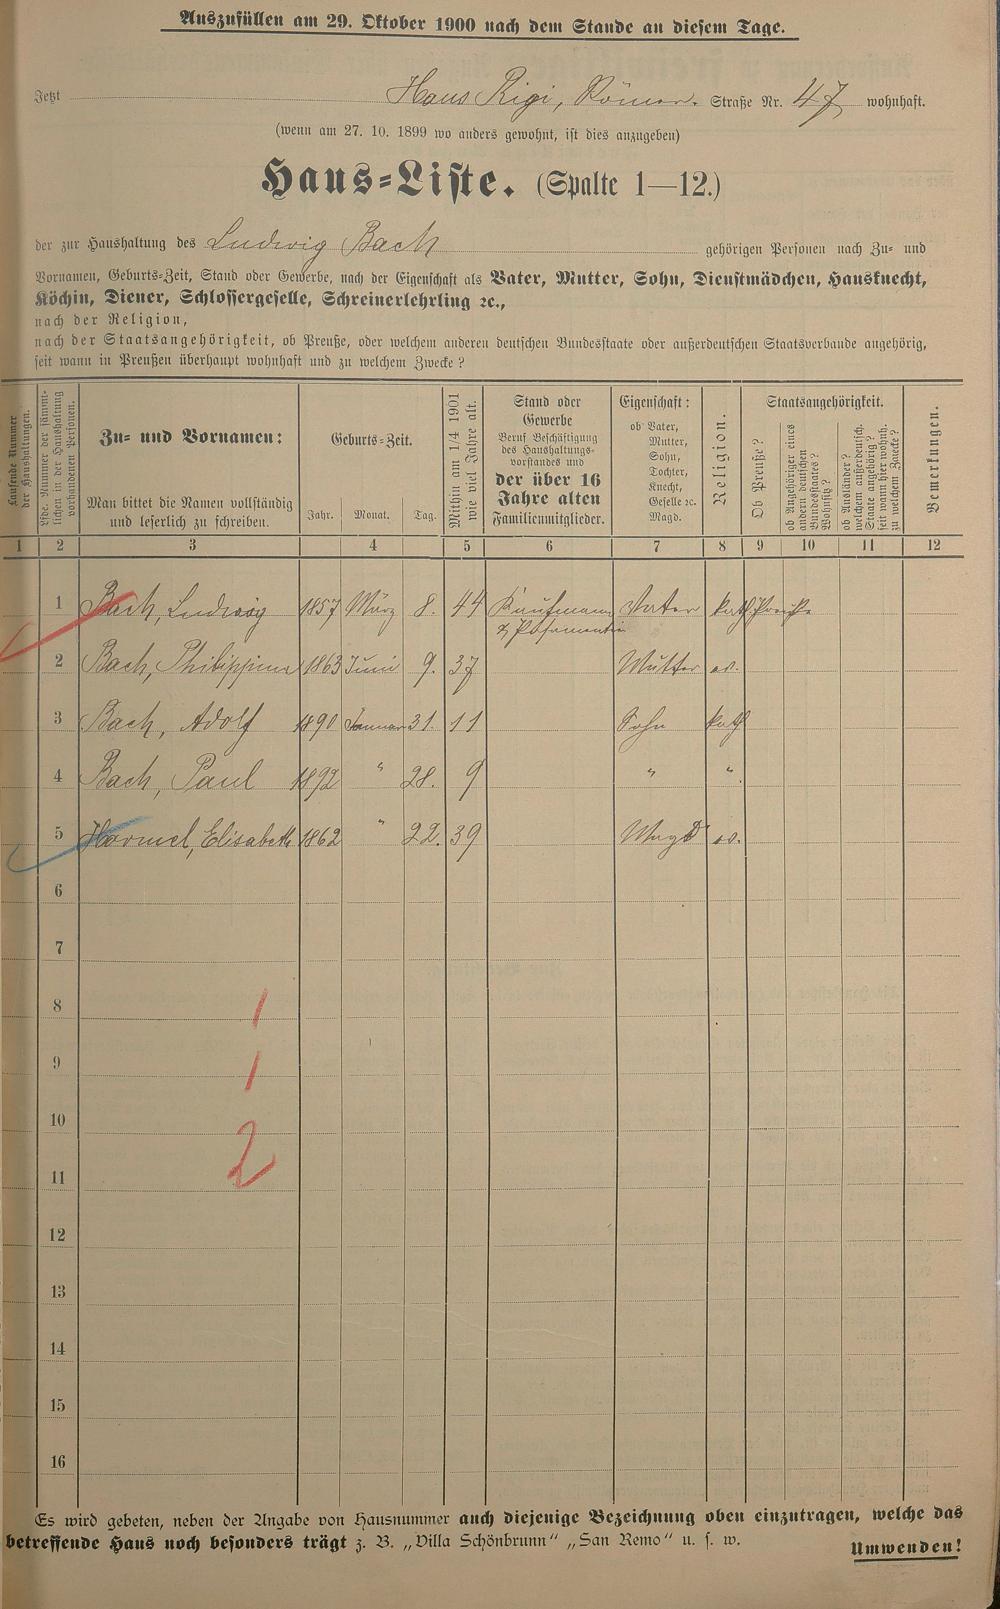 Auszufüllen am 29. Oktober 1900 nach dem Stande an diesem Tage.
Jetzt Haus Rigi, Römer. Straße Nr. 47 wohnhaft.
(wenn am 27. 10. 1899 wo anders gewohnt, ist dies anzugeben)
Haus-Liste. (Spalte 1—12.)
der zur Haushaltung des Ludwig Bach gehörigen Personen nach Zu- und
Vornamen, Geburts-Zeit, Stand oder Gewerbe, nach der Eigenschaft als Vater, Mutter, Sohn, Dienstmädchen, Hausknecht,
Köchin, Diener, Schlossergeselle, Schreinerlehrling ꝛc.,
nach der Religion,
nach der Staatsangehörigkeit, ob Preuße, oder welchem anderen deutschen Bundesstaate oder außerdeutschen Staatsverbande angehörig,
seit wann in Preußen überhaupt wohnhaft und zu welchem Zwecke?
Laufende Nummer
der Haushaltungen.
Lfde. Nummer der sämmt-
lichen in der Haushaltung
vorhandenen Personen.
Zu- und Vornamen:
Man bittet die Namen vollständig
und leserlich zu schreiben.
Geburts-Zeit.
Jahr. Monat. Tag.
Mithin am 1/4 1901
wie viel Jahre alt.
Stand oder
Gewerbe
Beruf Beschäftigung
des Haushaltungs-
vorstandes und
der über 16
Jahre alten
Familienmitglieder.
Eigenschaft:
ob Vater,
Mutter,
Sohn,
Tochter,
Knecht,
Geselle ꝛc.
Magd.
Religion.
Staatsangehörigkeit.
Ob Preuße?
ob Angehöriger eines
andern deutschen
Bundesstaates?
Wohnsitz?
ob Ausländer?
welchem außerdeutsch.
Staate angehörig?
seit wann hier wohnh.
zu welchem Zwecke?
Bemerkungen.
1 2 3 4 5 6 7 8 9 10 11 12
1 Bach, Ludwig 1857 März 8. 44 Kaufmann Vater kath Preuße
2 Bach, Philippine 1863 Juni 9. 37 Mutter ev.
3 Bach, Adolf 1890 Januar 31. 11 Sohn kath
4 Bach, Paul 1892 " 28. 9 " "
5 Hormel, Elisabeth 1862 " 22. 39 Magd ev.
6
7
8 1
9 1
10
11 2
12
13
14
15
16
Es wird gebeten, neben der Angabe von Hausnummer auch diejenige Bezeichnung oben einzutragen, welche das
betreffende Haus noch besonders trägt z. B. „Villa Schönbrunn“ „San Remo“ u. s. w.
Umwenden!